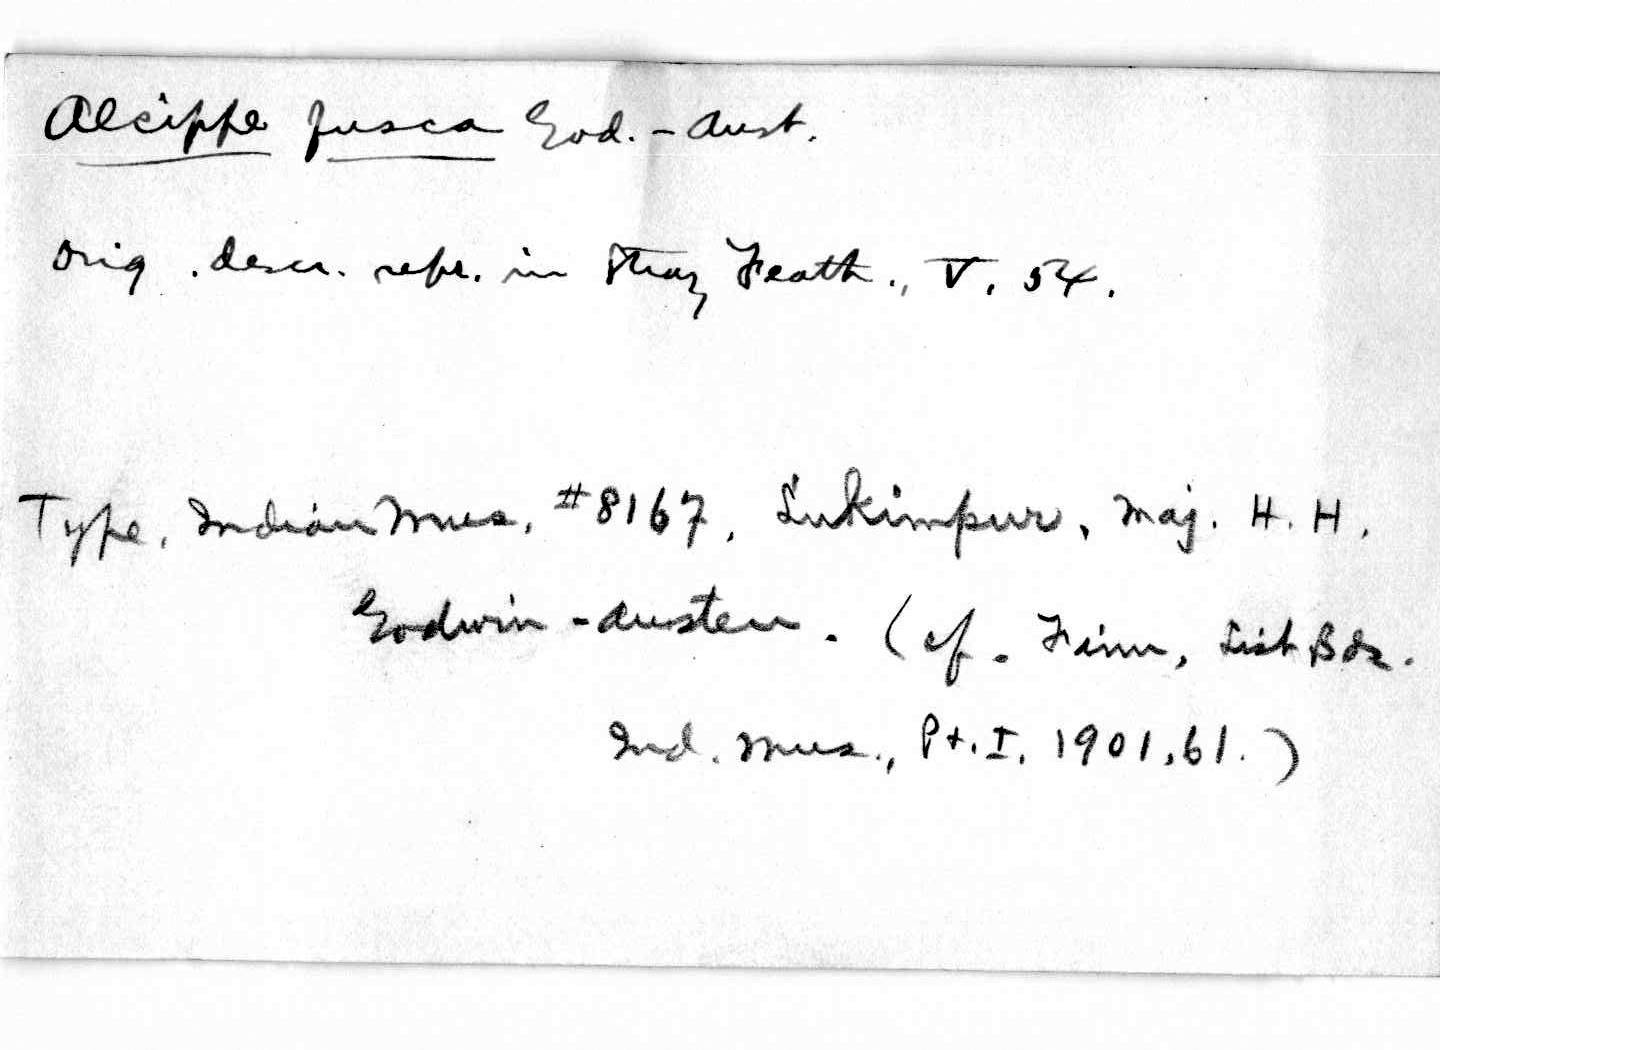 Alcippe fusca God.-Aust.
Orig. descr. repr. in Stray Feath., V, 54.
Type, Indian Mus, #8167, Lukimpur, Maj. H. H.
Godwin-Austen. (cf. Finn, List Bds.
Ind. Mus., Pt. I, 1901, 61.)